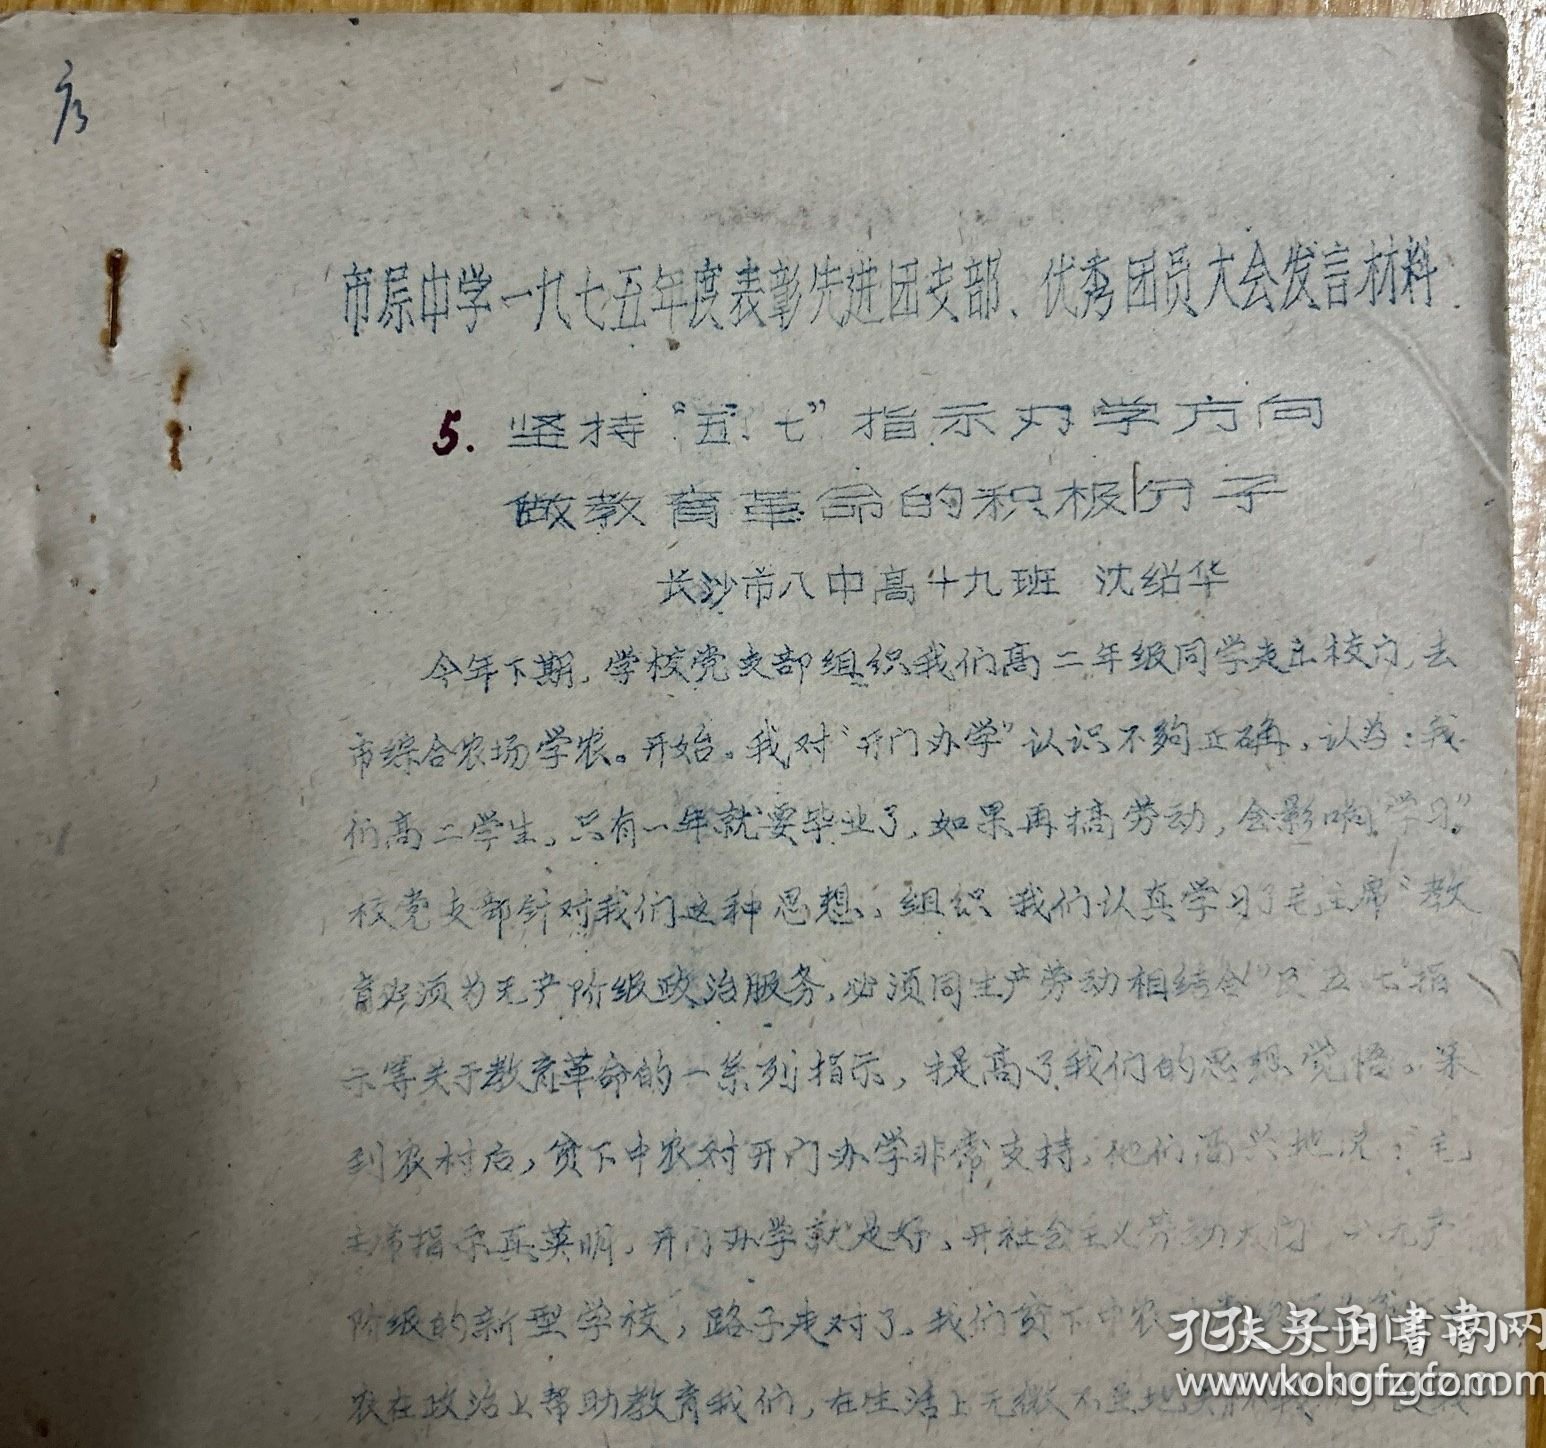 市属中学一九七五年度表彰先进团支部、优秀团员大会发言材料
5. 坚持“五·七”指示办学方向
做教育革命的积极分子
长沙市八中高十九班 沈绍华
今年下期,学校党支部组织我们高二年级同学走出校门,去
市综合农场学农。开始。我对“开门办学”认识不够正确,认为:我
们高二学生,只有一年就要毕业了,如果再搞劳动,会影响“学习”。
校党支部针对我们这种思想,组织我们认真学习了毛主席“教
育必须为无产阶级政治服务,必须同生产劳动相结合”及“五·七”指
示等关于教育革命的一系列指示,提高了我们的思想觉悟。来
到农村后,贫下中农对开门办学非常支持,他们高兴地说:“毛
主席指示真英明,开门办学就是好,开社会主义劳动大门,办无产
阶级的新型学校,路子走对了。我们贫下中农
农在政治上帮助教育我们,在生活上无微不至地
孔夫子旧书网
www.kongfz.com